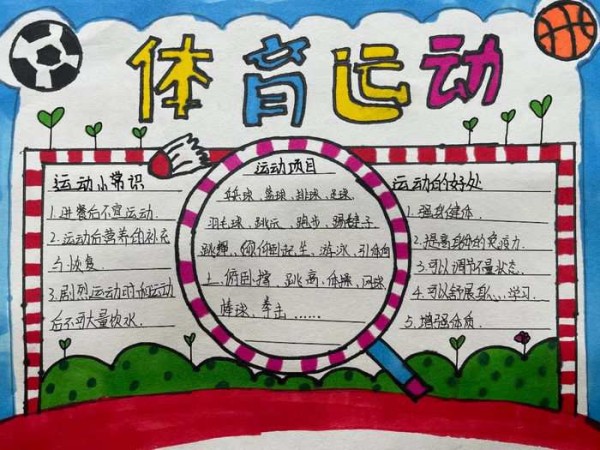 体育运动
运动小常识
1.进餐后不宜运动.
2.运动后营养的补充
与恢复.
3.剧烈运动时和运动
后不可大量饮水.
运动项目
乒乓球、篮球、排球、足球
羽毛球、跳远、跑步、踢毽子
跳绳、仰卧起坐、游泳、引体向
上、俯卧撑、跳高、体操、网球
棒球、拳击……
运动的好处
1.强身健体.
2.提高身体的免疫力
3.可以调节
状态.
4.可以舒展身心、学习.
5.增强体质.